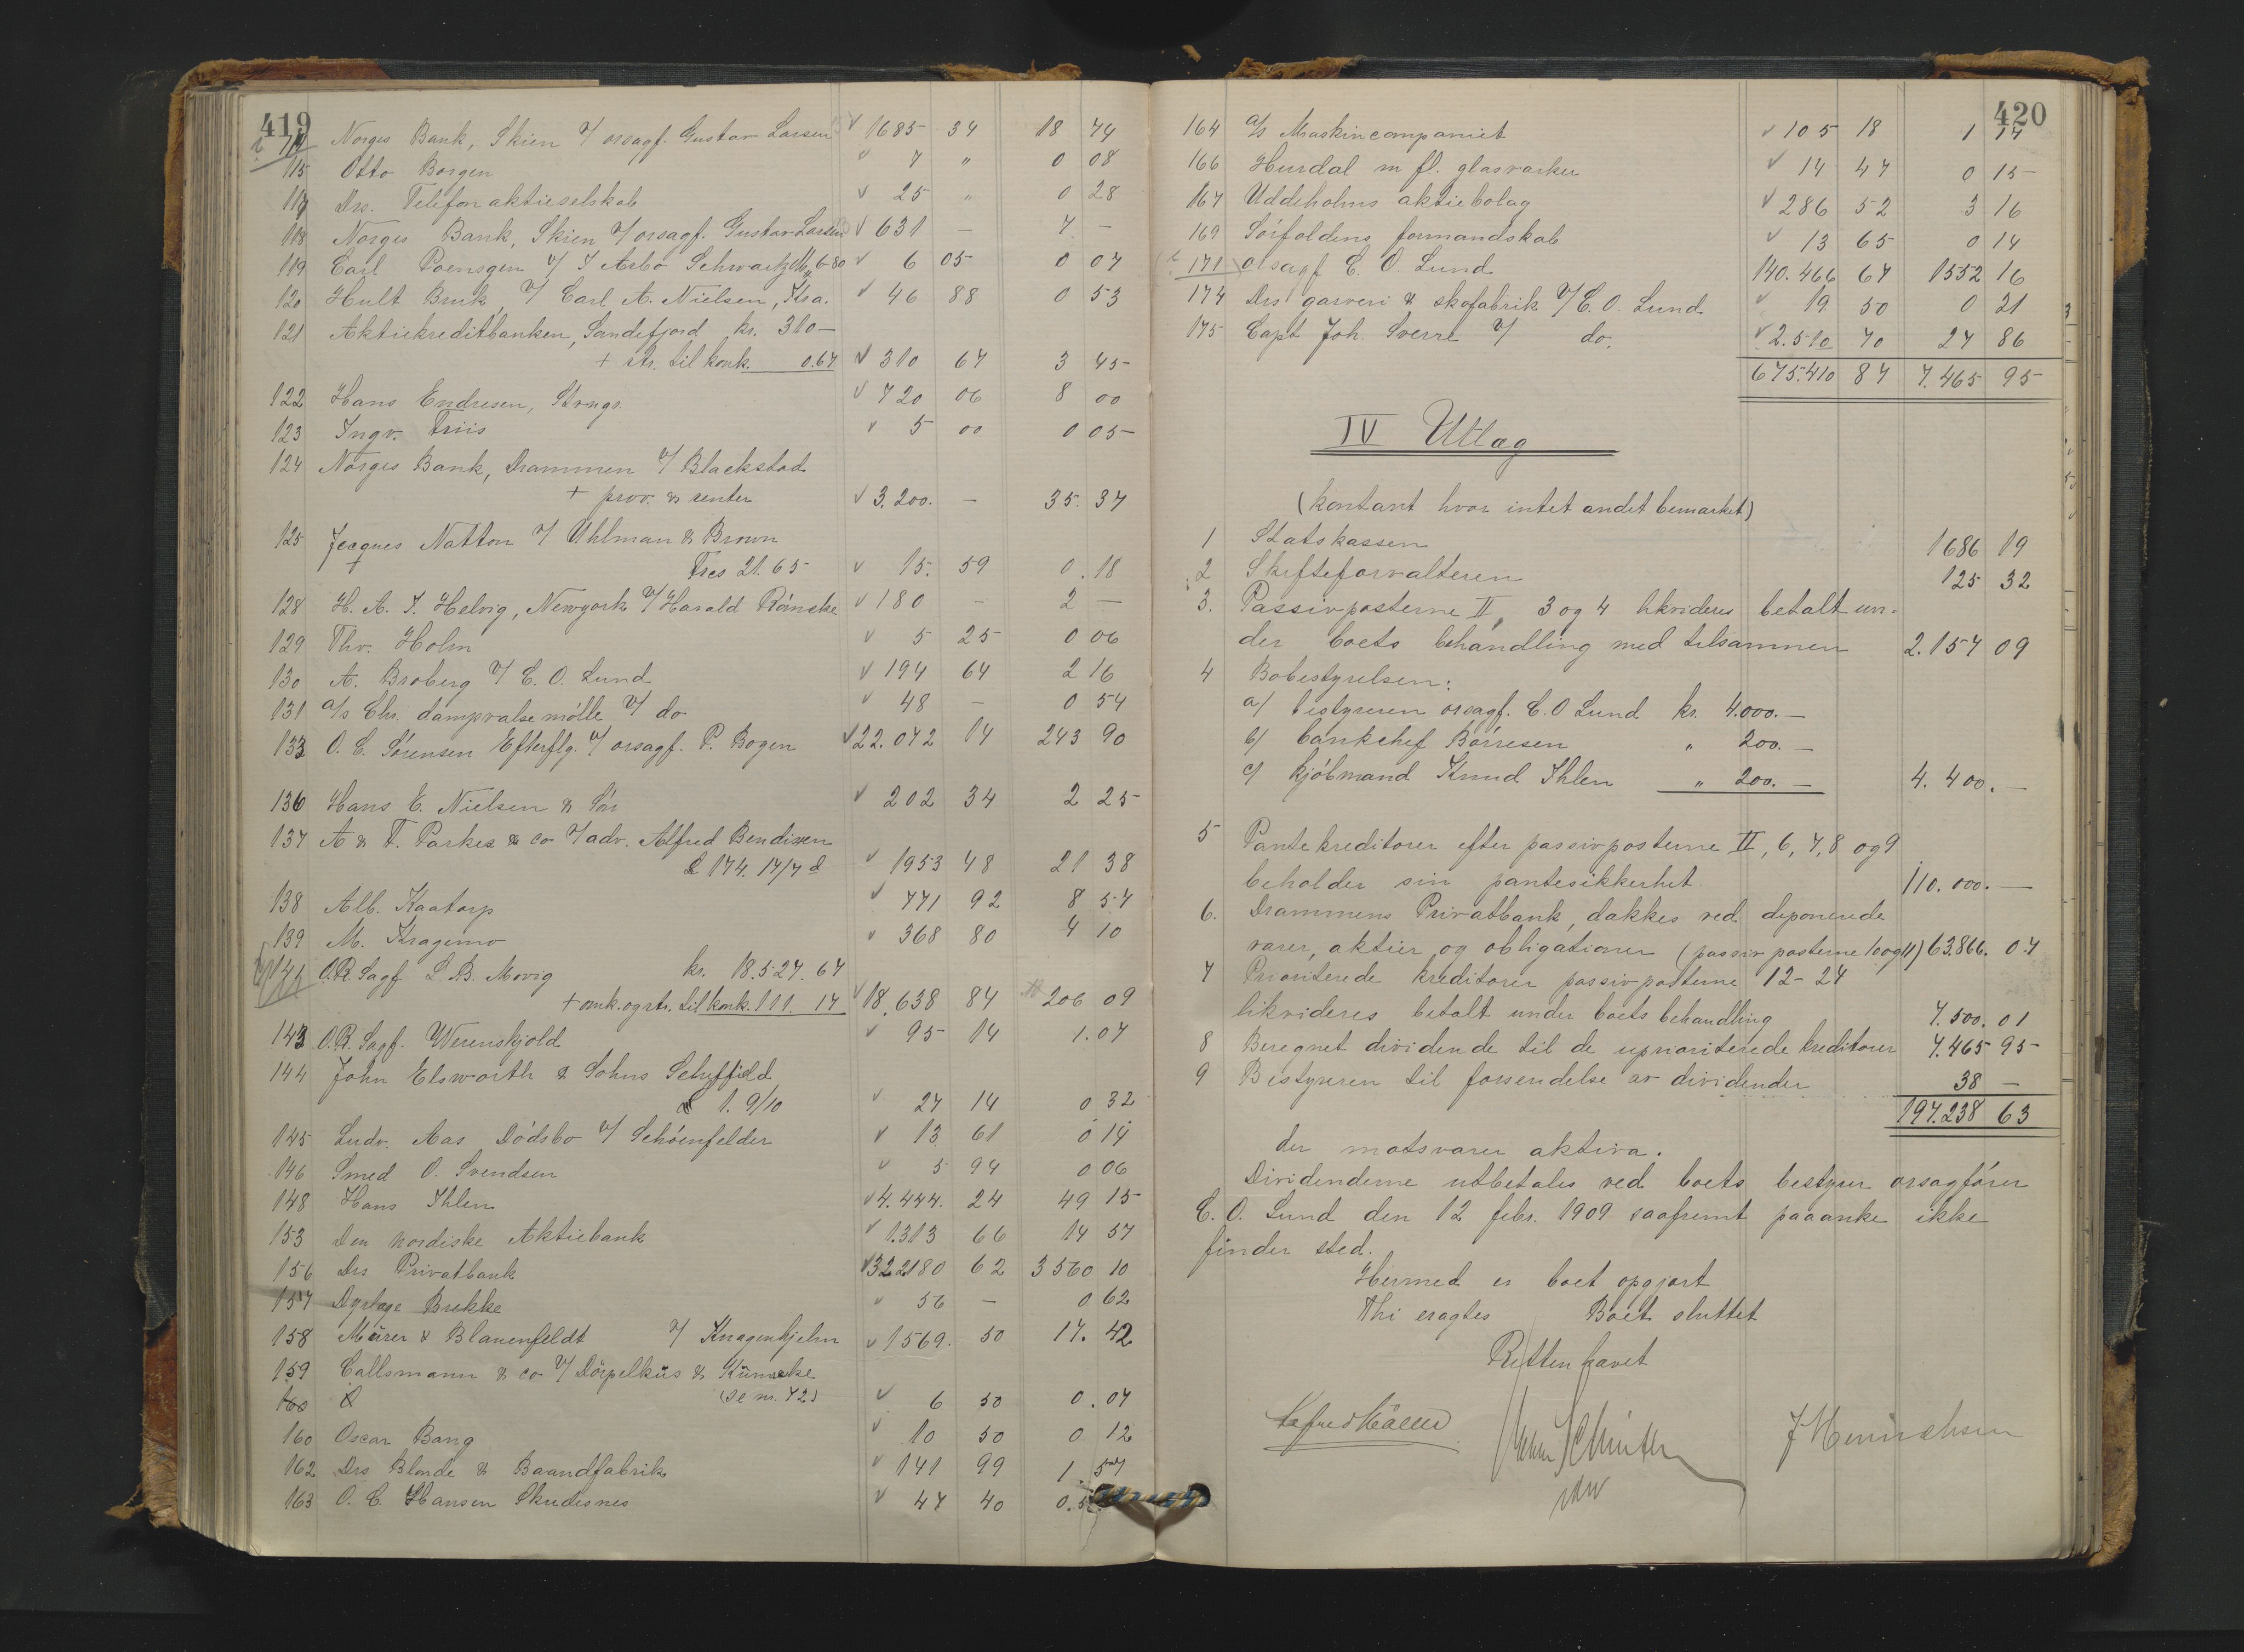 419
114 Norges Bank, Skien v/ orsagf. Gustav Larsen 1685 34 18 74
115 Otto Borgen 7 " 0 08
117 Drs. Telefonaktieselskab 25 " 0 28
118 Norges Bank, Skien v/ orsagf. Gustav Larsen 631 — 7 —
119 Carl Poensgen v/ J Asbo Schwartz M 6.80 6 05 0 07
120 Hult Bruk, v/ Carl A. Nielsen, Kra. 46 88 0 53
121 Aktiekreditbanken, Sandefjord kr. 310—
+ rtr. til konk. 0.67 310 67 3 45
122 Hans Endresen, Strngs. 720 06 8 00
123 Ingv. Friis 5 00 0 05
124 Norges Bank, Drammen v/ Blackstad
+ prov. & renter 3.200. — 35. 37
125 Jecques Natton v/ Uhlman & Brown
Frcs 21.65 15. 59 0.18
128 H. A. J. Helvig, Newyork v/ Harald Röncke 180 — 2 —
129 Thv. Holm 5 25 0 06
130 A. Broberg v/ C. O. Lund 194 64 2 16
131 a/s Chr. dampvalsemölle v/ do 48 — 0 54
133 O. C. Sørensen Efterflg. v/ orsagf. P. Bogen 22.072 14 243 90
136 Hans E. Nielsen & Sön 202 34 2 25
137 A & F. Parkes & co v/ adv. Alfred Bendixen
£ 174. 17/7 d 1953 48 21 38
138 Alb. Kaatorp 771 92 8 57
139 M. Kragemo 368 80 4 10
141 O.R. Sagf L. B. Movig kr. 18.527.67
+ omk. og rtr. til konk. 111. 17 18.638 84 206 09
143 O.R. Sagf. Werenskjold 95 14 1.07
144 John Elsworth & Sohns Scheffield
£ 1. 9/10 27 14 0 32
145 Ludv. Aas Dödsbo v/ Schöenfelder 13 61 0 14
146 Smed O. Svendsen 5 94 0 06
148 Hans Ihlen 4.444. 24 49 15
153 Den nordiske Aktiebank 1.313 66 14 57
156 Drs Privatbank 322180 62 3560 10
157 Dyrlæge Brekke 56 — 0 62
158 Mürer & Blauenfeldt v/ Knagenhjelm 1569. 50 17. 42
159 Callsmann & co v/ Dörpelküs & Künecke
(se nr. 72) 6 50 0.07
160 Oscar Bang 10 50 0 12
162 Drs Blonde & Baandfabrik 141 99 1 57
163 O. C. Hansen Skudesnes 47 40 0.5
420
164 a/s Maskincompaniet 105 18 1 17
166 Hurdal m fl. glasværker 14 47 0 15
167 Uddeholms aktiebolag 286 52 3 16
169 Sörfoldens formandskab 13 65 0 14
171 orsagf C. O. Lund 140.466 67 1552 16
174 Drs garveri & skofabrik v/ C. O. Lund 19 50 0 21
175 Capt Joh. Sverre v/ do. 2.510 70 27 86
675.410 87 7.465 95
IV Utlæg
(kontant hvor intet andet bemærket)
1 Statskassen 1686 19
2 Skifteforvalteren 125 32
3. Passivposterne II, 3 og 4 likvideres betalt un-
der boets behandling med tilsammen 2.157 09
4 Bobestyrelsen:
a/ bestyreren orsagf. C. O Lund kr. 4.000.—
b/ bankchef Börresen " 200.—
c/ kjöbmand Knud Ihlen " 200.— 4.400.—
5 Pantekreditorer efter passivposterne II, 6, 7, 8 og 9
beholder sin pantesikkerhet. 110.000.—
6. Drammens Privatbank, dækkes ved deponerede
varer, aktier og obligationer (passiv posterne 10 og 11) 63.866. 07
7 Prioriterede kreditorer passivposterne 12-24
likvideres betalt under boets behandling 7.500.01
8 Beregnet dividende til de uprioriterede kreditorer 7.465 95
9 Bestyreren til forsendelse av dividender 38 —
197.238 63
der motsvarer aktiva.
Dividenderne utbetales ved boets bestyrer orsagförer
C. O. Lund den 12 febr. 1909 saafremt paaanke ikke
finder sted.
Hermed er boet opgjort
Thi eragtes Boet sluttet
Retten hævet